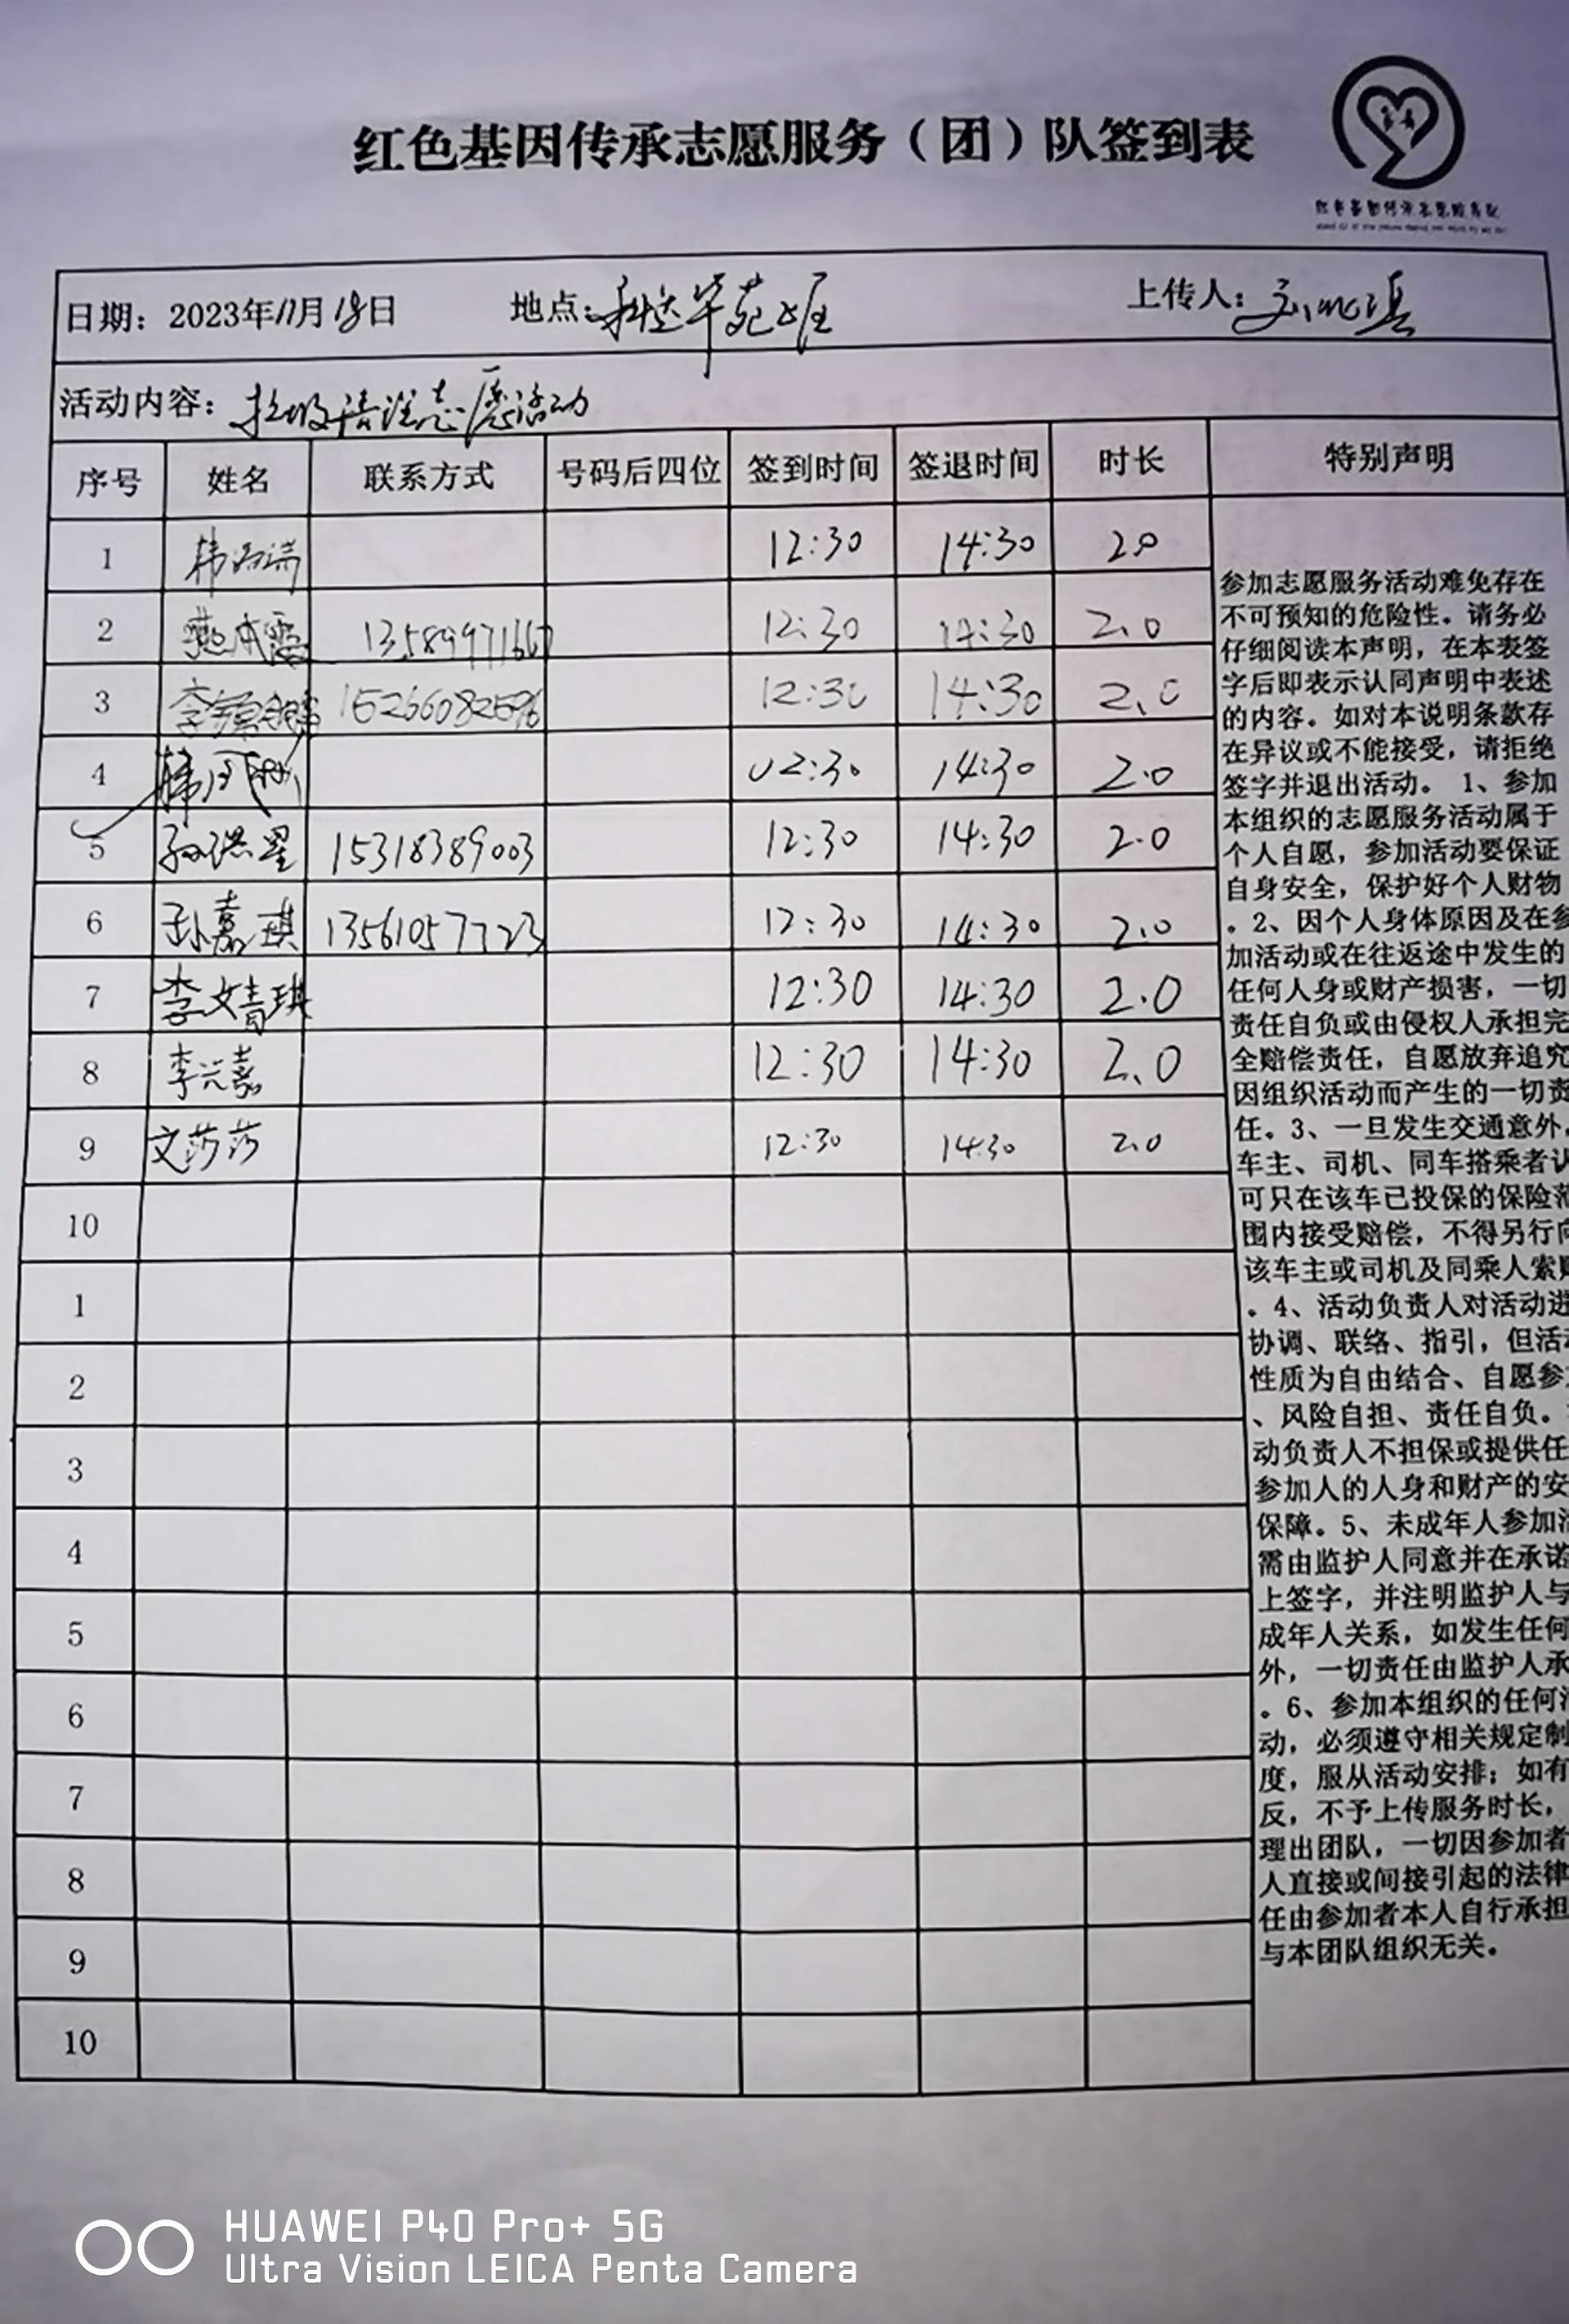 红色基因传承志愿服务（团）队签到表
日期：2023年11月18日 地点： 上传人：
活动内容：垃圾清洁志愿活动
序号 姓名 联系方式 号码后四位 签到时间 签退时间 时长 特别声明
1 12:30 14:30 2.0
2 12:30 14:30 2.0
3 15266082596 12:30 14:30 2.0
4 02:30 14:30 2.0
5 15318389003 12:30 14:30 2.0
6 孙嘉琪 13561057723 12:30 14:30 2.0
7 李文青琪 12:30 14:30 2.0
8 李兴嘉 12:30 14:30 2.0
9 文莎莎 12:30 14:30 2.0
10
1
2
3
4
5
6
7
8
9
10
参加志愿服务活动难免存在
不可预知的危险性。请务必
仔细阅读本声明，在本表签
字后即表示认同声明中表述
的内容。如对本说明条款存
在异议或不能接受，请拒绝
签字并退出活动。 1、参加
本组织的志愿服务活动属于
个人自愿，参加活动要保证
自身安全，保护好个人财物
。2、因个人身体原因及在参
加活动或在往返途中发生的
任何人身或财产损害，一切
责任自负或由侵权人承担完
全赔偿责任，自愿放弃追究
因组织活动而产生的一切责
任。3、一旦发生交通意外，
车主、司机、同车搭乘者认
可只在该车已投保的保险范
围内接受赔偿，不得另行向
该车主或司机及同乘人索赔
。4、活动负责人对活动进
协调、联络、指引，但活动
性质为自由结合、自愿参加
、风险自担、责任自负。
动负责人不担保或提供任
参加人的人身和财产的安
保障。5、未成年人参加活
需由监护人同意并在承诺
上签字，并注明监护人与
成年人关系，如发生任何
外，一切责任由监护人承
。6、参加本组织的任何活
动，必须遵守相关规定制
度，服从活动安排；如有
反，不予上传服务时长，
理出团队，一切因参加者
人直接或间接引起的法律
任由参加者本人自行承担
与本团队组织无关。
HUAWEI P40 Pro+ 5G
Ultra Vision LEICA Penta Camera